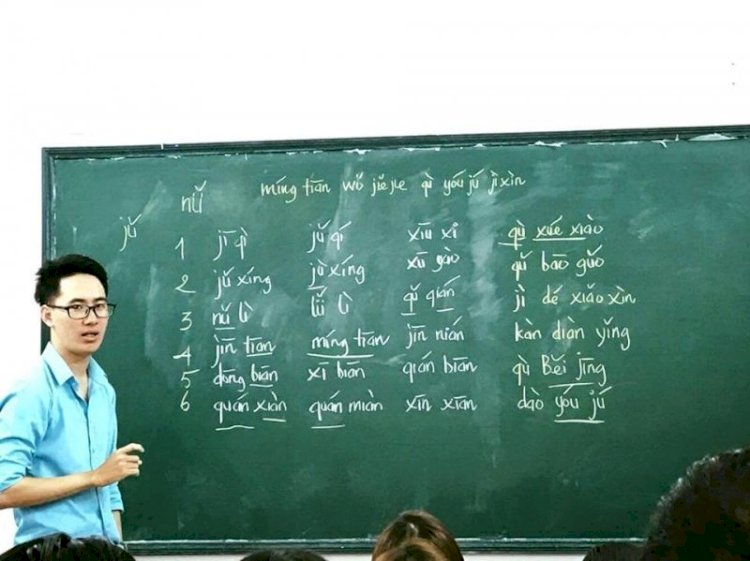 míng tiān wǒ jiějie qì yóu jú jì xìn
nǚ
jǔ
1 jī qì jǔ qí xiū xi qù xué xiào
2 jǔ xíng jù xíng xū yào qǔ bāo guǒ
3 nǔ lì lǚ lì qǔ qián jì dé xiǎo xìn
4 jīn tiān míng tiān jīn nián kàn diàn yǐng
5 dōng biān xī biān qián biān qù Běi jīng
6 quán xiàn quán miàn xīn xiān dào yóu jú